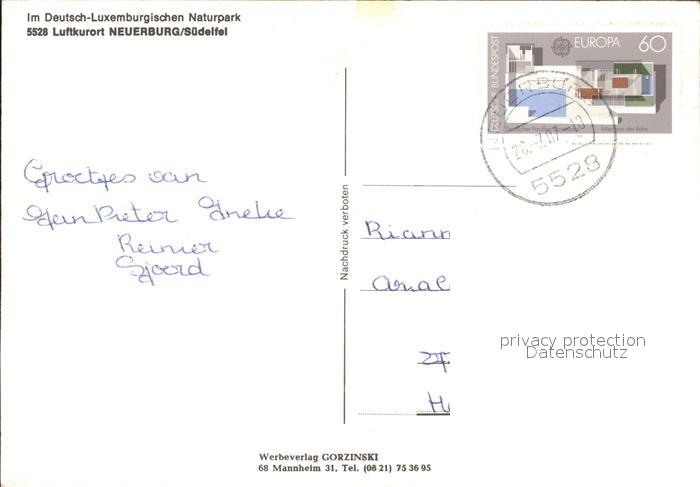 Im Deutsch-Luxemburgischen Naturpark
5528 Luftkurort NEUERBURG/Südeifel
DEUTSCHE BUNDESPOST
EUROPA 60
Deutscher Pavillon
Mies van der Rohe
5528
Groetjes van
Jan Pieter Ineke
Reinier
Sjoerd
Nachdruck verboten
Riann
Anal
H
privacy protection
Datenschutz
Werbeverlag GORZINSKI
68 Mannheim 31, Tel. (06 21) 75 36 95